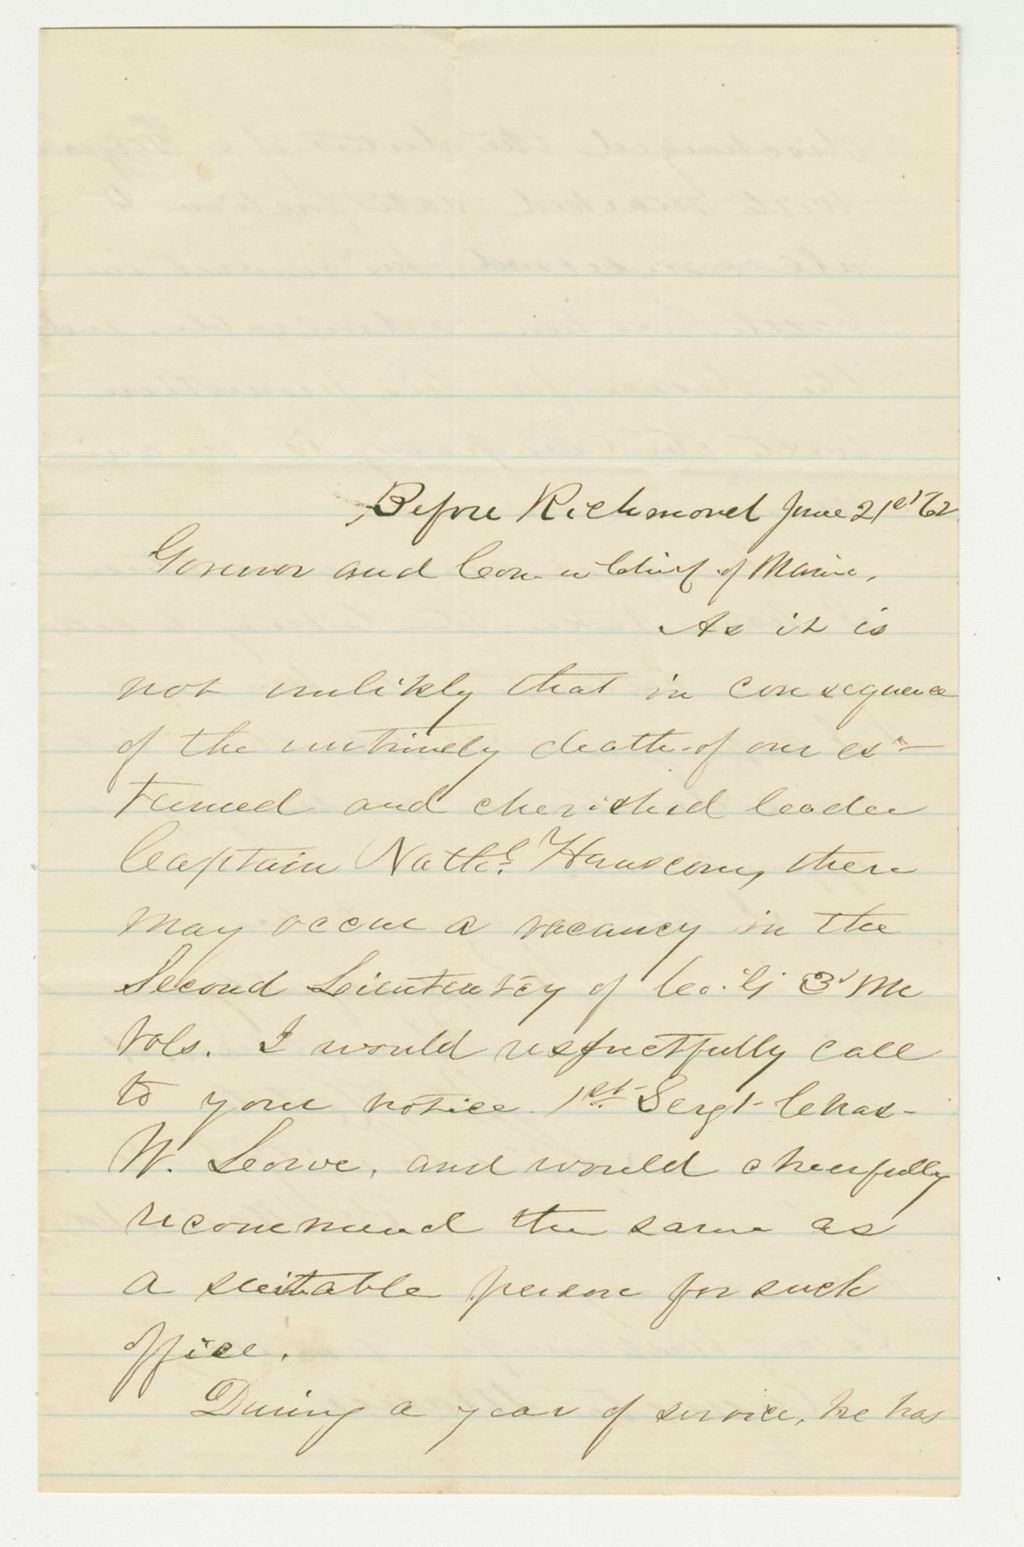 Before Richmond June 21st '62
Governor and Com in Chief of Maine,
As it is
not unlikely that in consequence
of the untimely death of our es-
teemed and cherished leader
Captain Nathl. Hanscom, there
may occur a vacancy in the
Second Lieutenancy of Co. G 3d Me
Vols. I would respectfully call
to your notice 1st. Sergt Chas
W. Lowe, and would cheerfully
recommend the same as
a suitable person for such
office.
During a year of service, he has